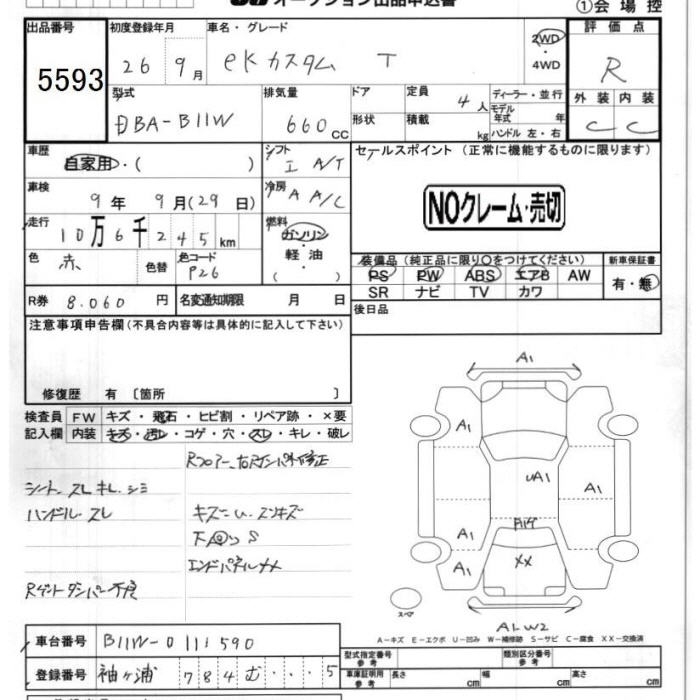 オークション出品申込書
①会場控
出品番号
5593
初度登録年月
26 9月
車名・グレード
eKカスタム T
2WD
・
4WD
評価点
R
型式
DBA-B11W
排気量
660 CC
ドア
形状
定員
4人
積載
kg
ディーラー・並行
モデル年式 年
ハンドル 左・右
外装 内装
C C
車歴
自家用・( )
シフト
I A/T
セールスポイント(正常に機能するものに限ります)
車検
9年 9月(29日)
冷房
A A/C
NOクレーム・売切
走行
10万6千245km
燃料
ガソリン
・
軽油
( )
色
赤
色替
色コード
P26
装備品(純正品に限り○をつけてください)
PS PW ABS エアB AW
SR ナビ TV カワ
新車保証書
有・無
R券 8.060円
名変通知期限 月 日
後日品
注意事項申告欄(不具合内容等は具体的に記入して下さい)
修復歴 有 〔箇所 〕
検査員
記入欄
FW キズ・飛石・ヒビ割・リペア跡・×要
内装 キズ・汚レ・コゲ・穴・スレ・キレ・破レ
Rフロアー、右Rインパネ修正
シート、スレ キレ、シミ
ハンドル、スレ
キズ
S
エンドパネル
Rゲートダンパー不良
A1
A1
UA1
A1
A1
A1
XX
スペア
A1 W2
A-キズ E-エクボ U-凹み W-補修跡 S-サビ C-腐食 XX-交換済
車台番号 B11W-0111590
登録番号 袖ヶ浦 784 む ・・・5
型式指定番号
参考
類別区分番号
参考
車庫証明用
参考
長さ cm 幅 cm 高さ cm